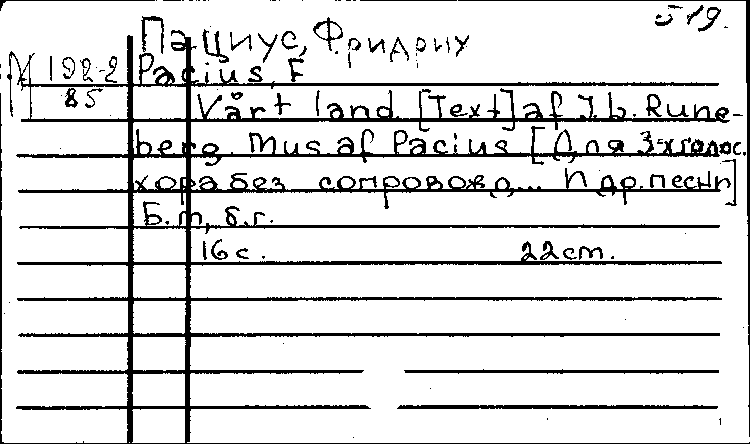 519.
Пациус, Фридрих
М 192-2 Pacius, F
85
Vårt land [Text] af J. L. Rune-
berg. Mus af Pacius [Для 3-хголос.
хора без сопровожд... И др. песни]
Б.м, б.г.
16 с. 22cm.